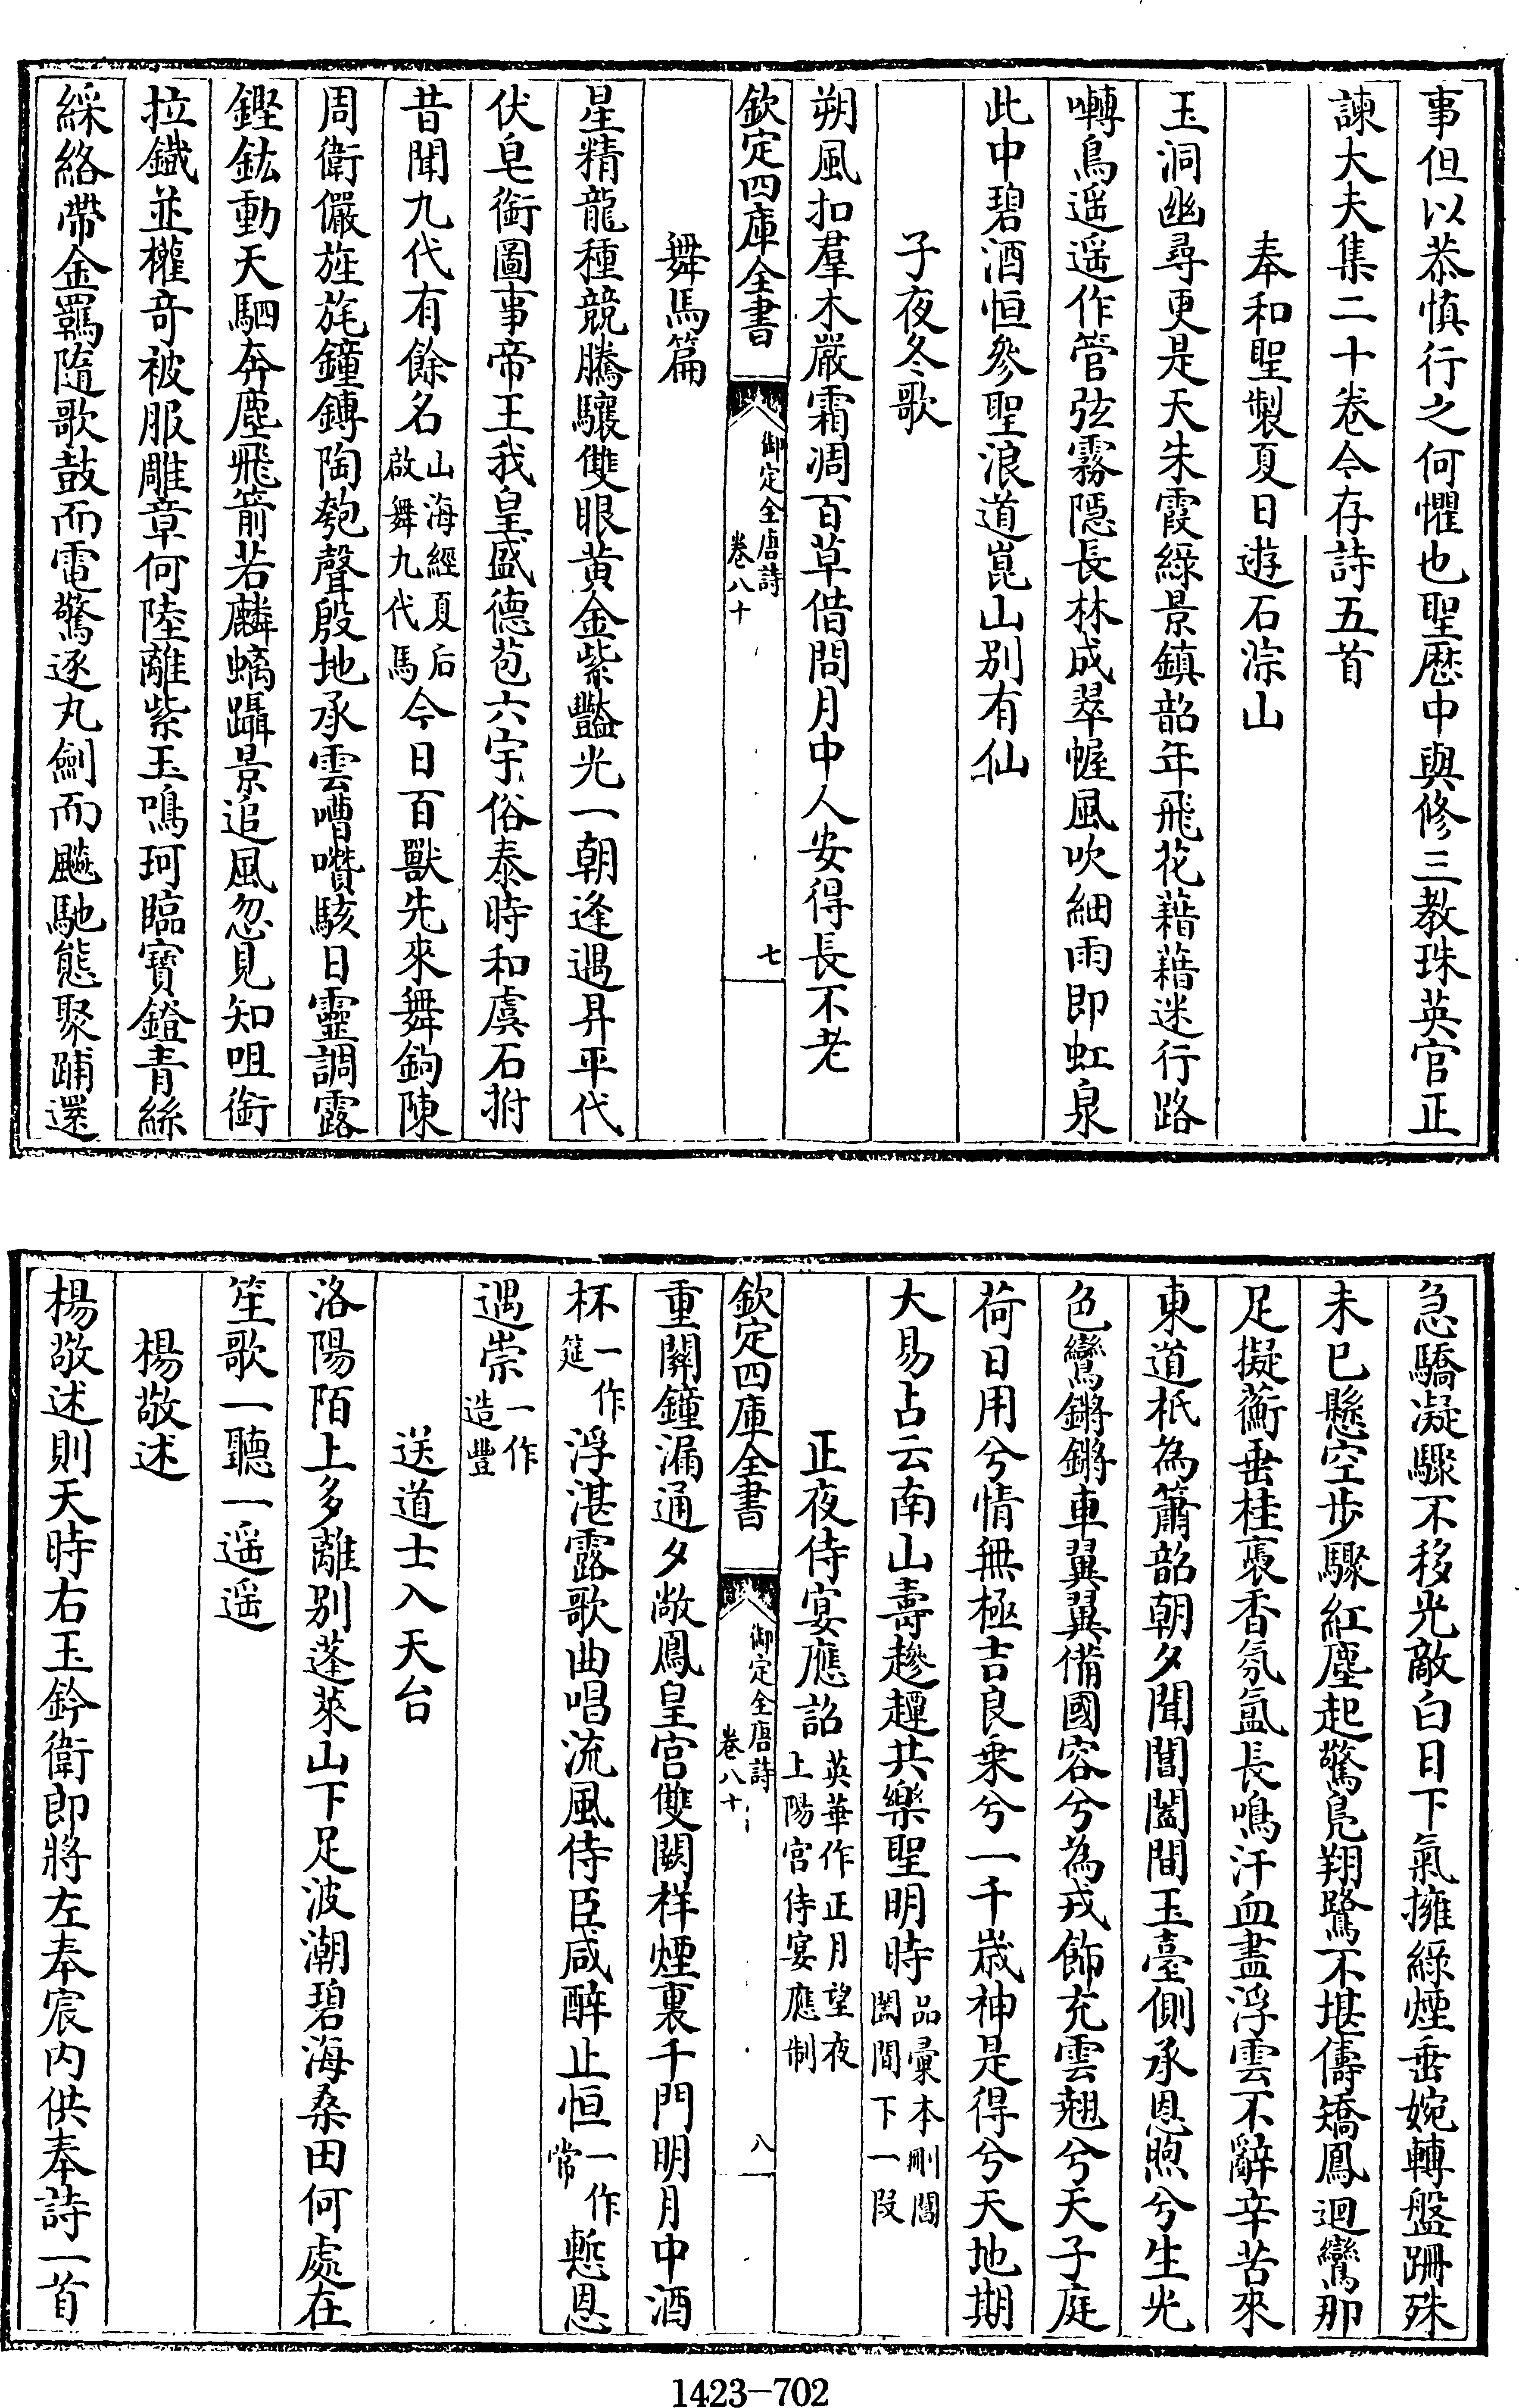 事但以恭慎行之何懼也聖歷中與修三教珠英官正
諫大夫集二十卷今存詩五首
奉和聖製夏日遊石淙山
玉洞幽尋更是天朱霞綠景鎮韶年飛花藉藉迷行路
囀鳥遥遥作管弦霧隱長林成翠幄風吹細雨即虹泉
此中碧酒恒參聖浪道崑山別有仙
子夜冬歌
朔風扣羣木嚴霜凋百草借問月中人安得長不老
欽定四庫全書
御定全唐詩
卷八十
七
舞馬篇
星精龍種競騰驤雙眼黃金紫豔光一朝逢遇昇平代
伏皂銜圖事帝王我皇盛德苞六宇俗泰時和虞石拊
昔聞九代有餘名山海經夏后啟舞九代馬今日百獸先來舞鉤陳
周衛儼旌旄鐘鎛陶匏聲殷地承雲嘈囋駭日靈調露
鏗鈜動天駟奔塵飛箭若麟螭躡景追風忽見知咀銜
拉鐵並權奇被服雕章何陸離紫玉鳴珂臨寶鐙青絲
綵絡帶金羈隨歌鼓而電驚逐丸劍而飈馳態聚䠙還
急驕凝驟不移光敵白日下氣擁綠煙垂婉轉盤跚殊
未已懸空步驟紅塵起驚鳧翔鷺不堪儔矯鳳迴鸞那
足擬蘅垂桂褭香氛氲長鳴汗血盡浮雲不辭辛苦來
東道祇為簫韶朝夕聞閶闔間玉臺側承恩煦兮生光
色鸞鏘鏘車翼翼備國容兮為戎飾充雲翹兮天子庭
荷日用兮情無極吉良乗兮一千歲神是得兮天地期
大易占云南山壽趁趯共樂聖明時品彚本刪閶闔間下一段
正夜侍宴應詔英華作正月望夜上陽宮侍宴應制
欽定四庫全書
御定全唐詩
卷八十
八
重關鐘漏通夕敞鳳皇宮雙闕祥煙裏千門明月中酒
杯一作筵浮湛露歌曲唱流風侍臣咸醉止恒一作常慙恩
遇崇一作造豐
送道士入天台
洛陽陌上多離別蓬萊山下足波潮碧海桑田何處在
笙歌一聽一遥遥
楊敬述
楊敬述則天時右玉鈐衛即將左奉宸內供奉詩一首
1423-702